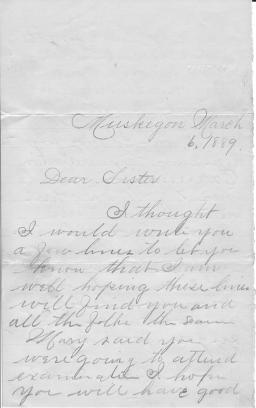 Muskegon March
6, 1889.
Dear Sister
I thought
I would write you
a few lines to let you
know that I am
well hoping these lines
will find you and
all the folks the same
Mary said you
were going to attend
I hope
you will have good